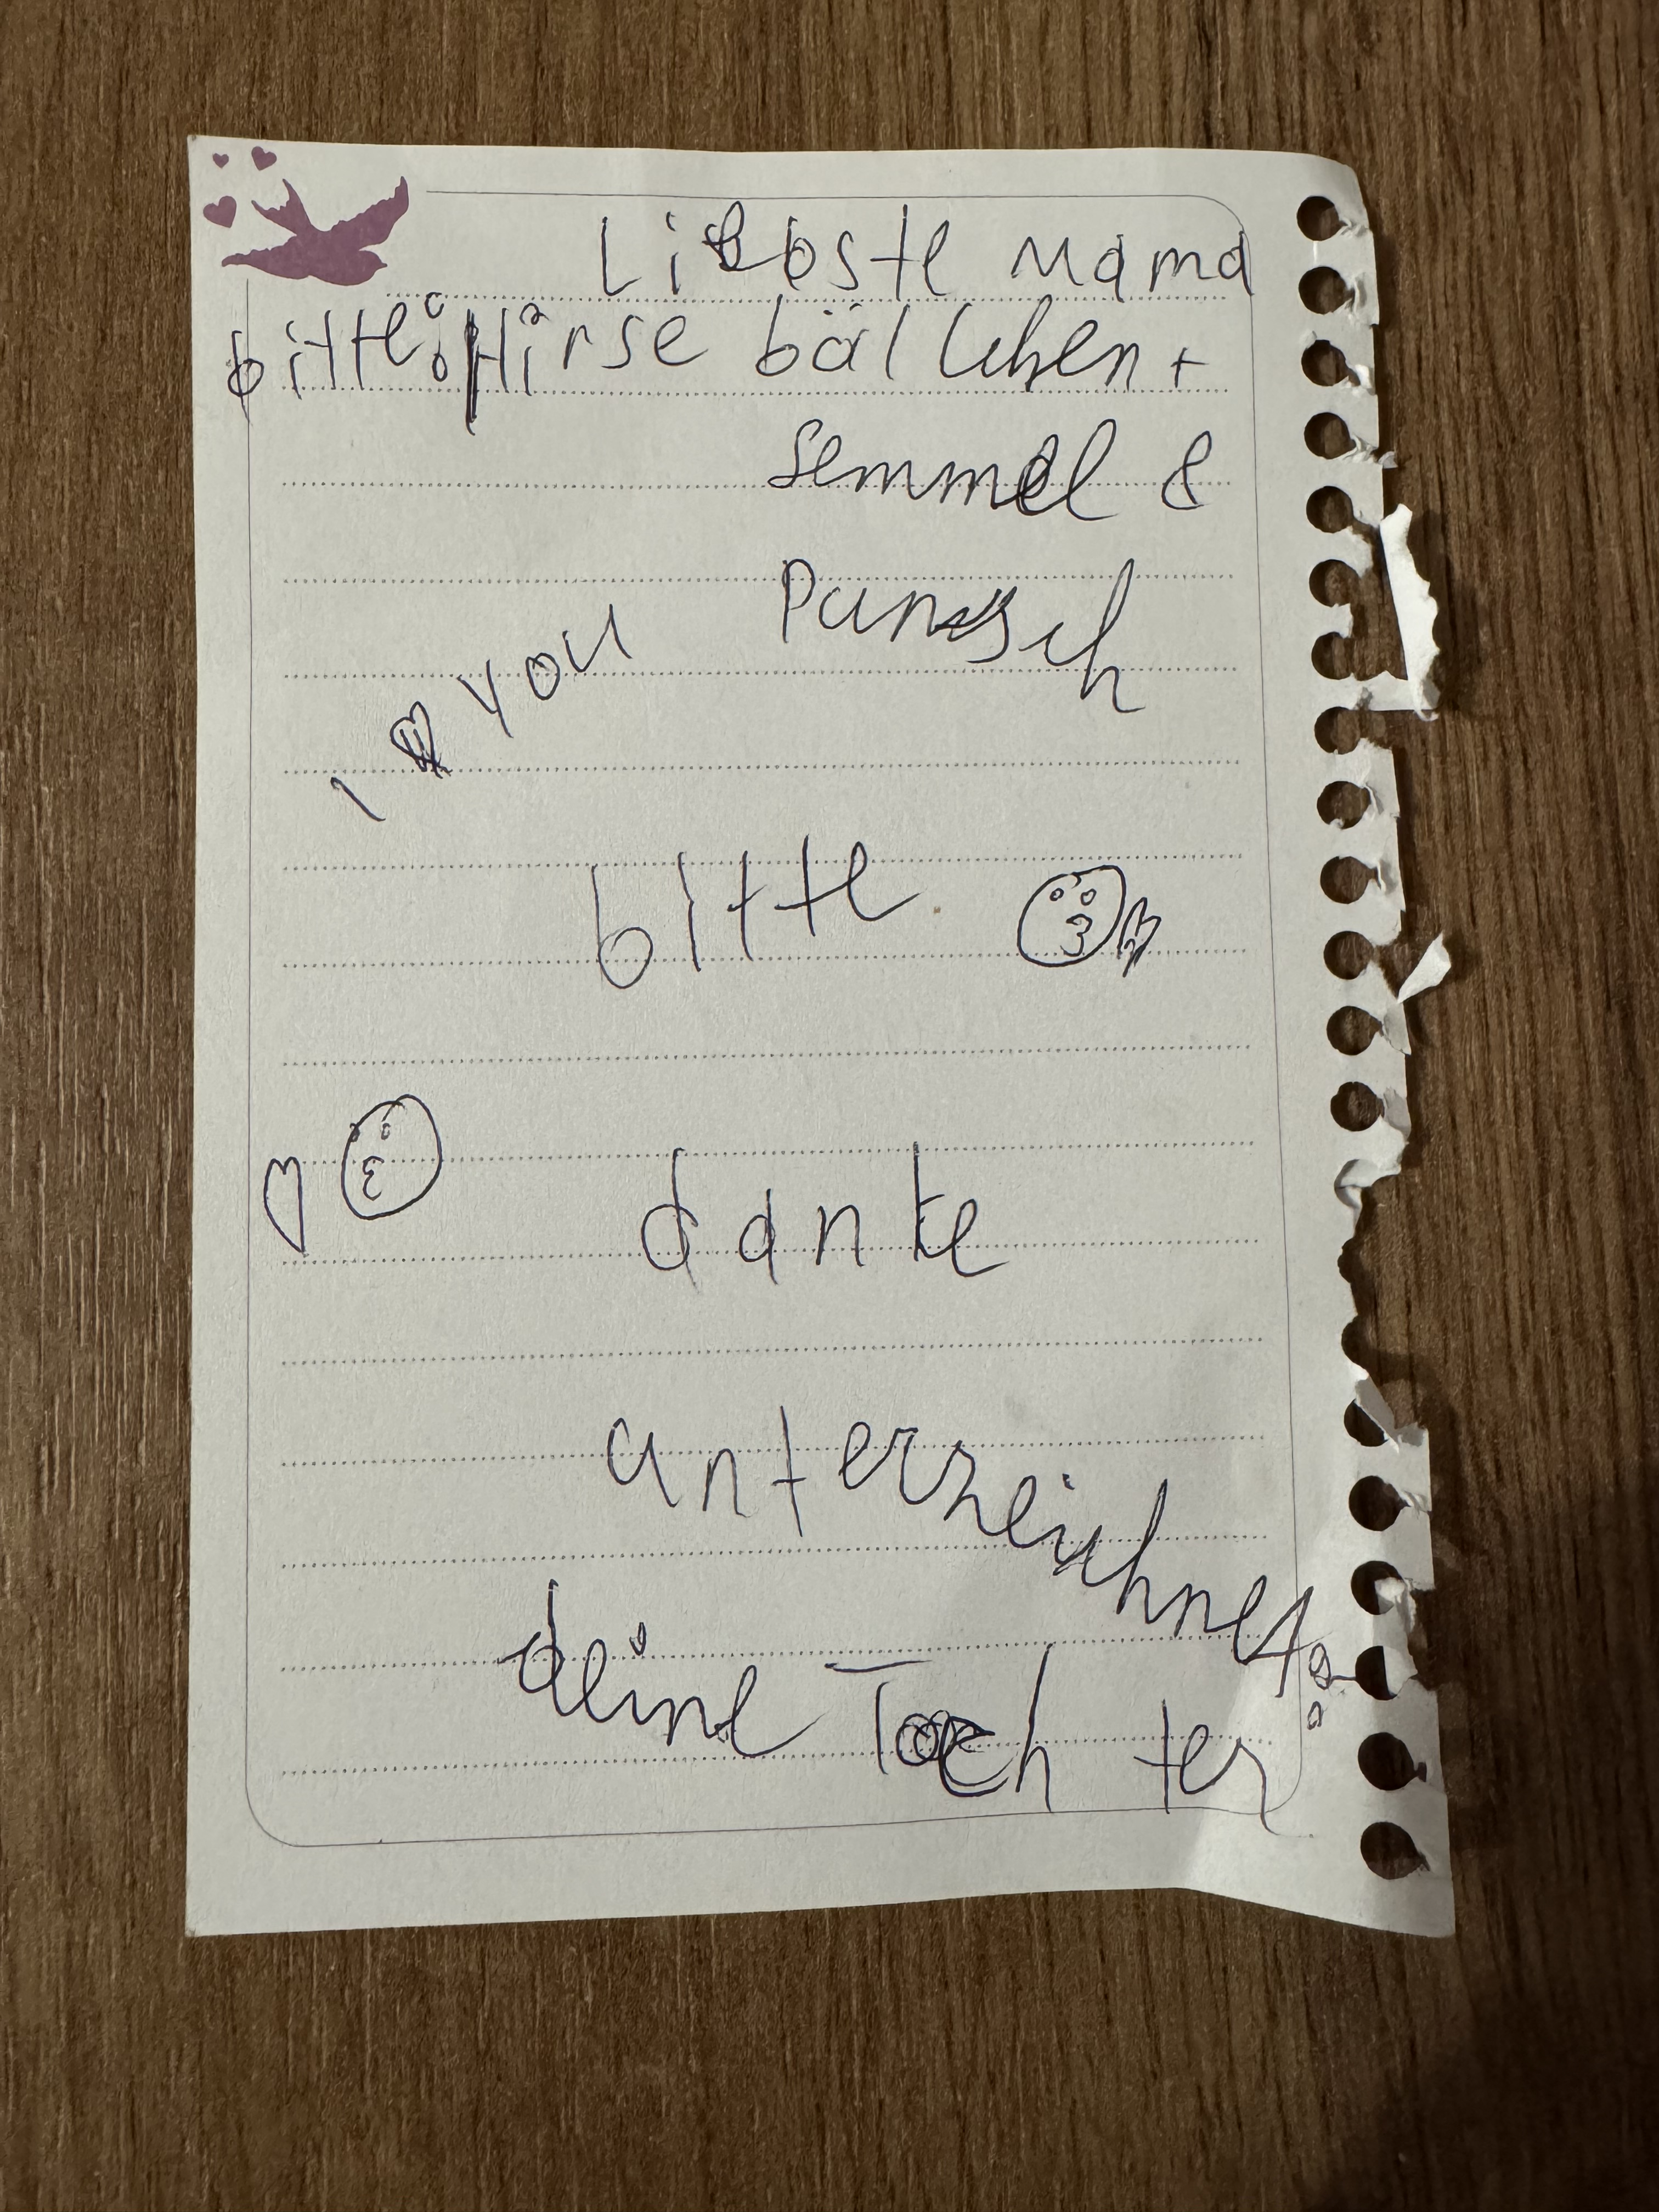 Liebste Mama
bitte: Hirse bällchen +
Semmel &
Punsch
I ♥ you
bitte
danke
unterzeichnet:
deine Tochter